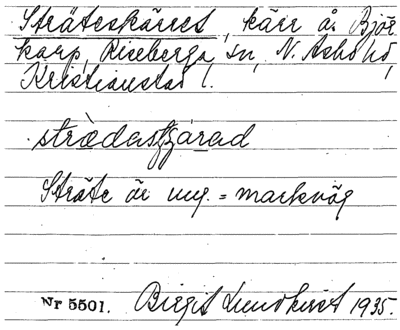 Sträteskärret, kärr å Björ
karp, Riseberga sn, N. Åsbo hd,
Kristianstad l.
strädasʃärad
Sträte är ung. = markväg
Nr 5501. Birgit Lundkvist 1935.